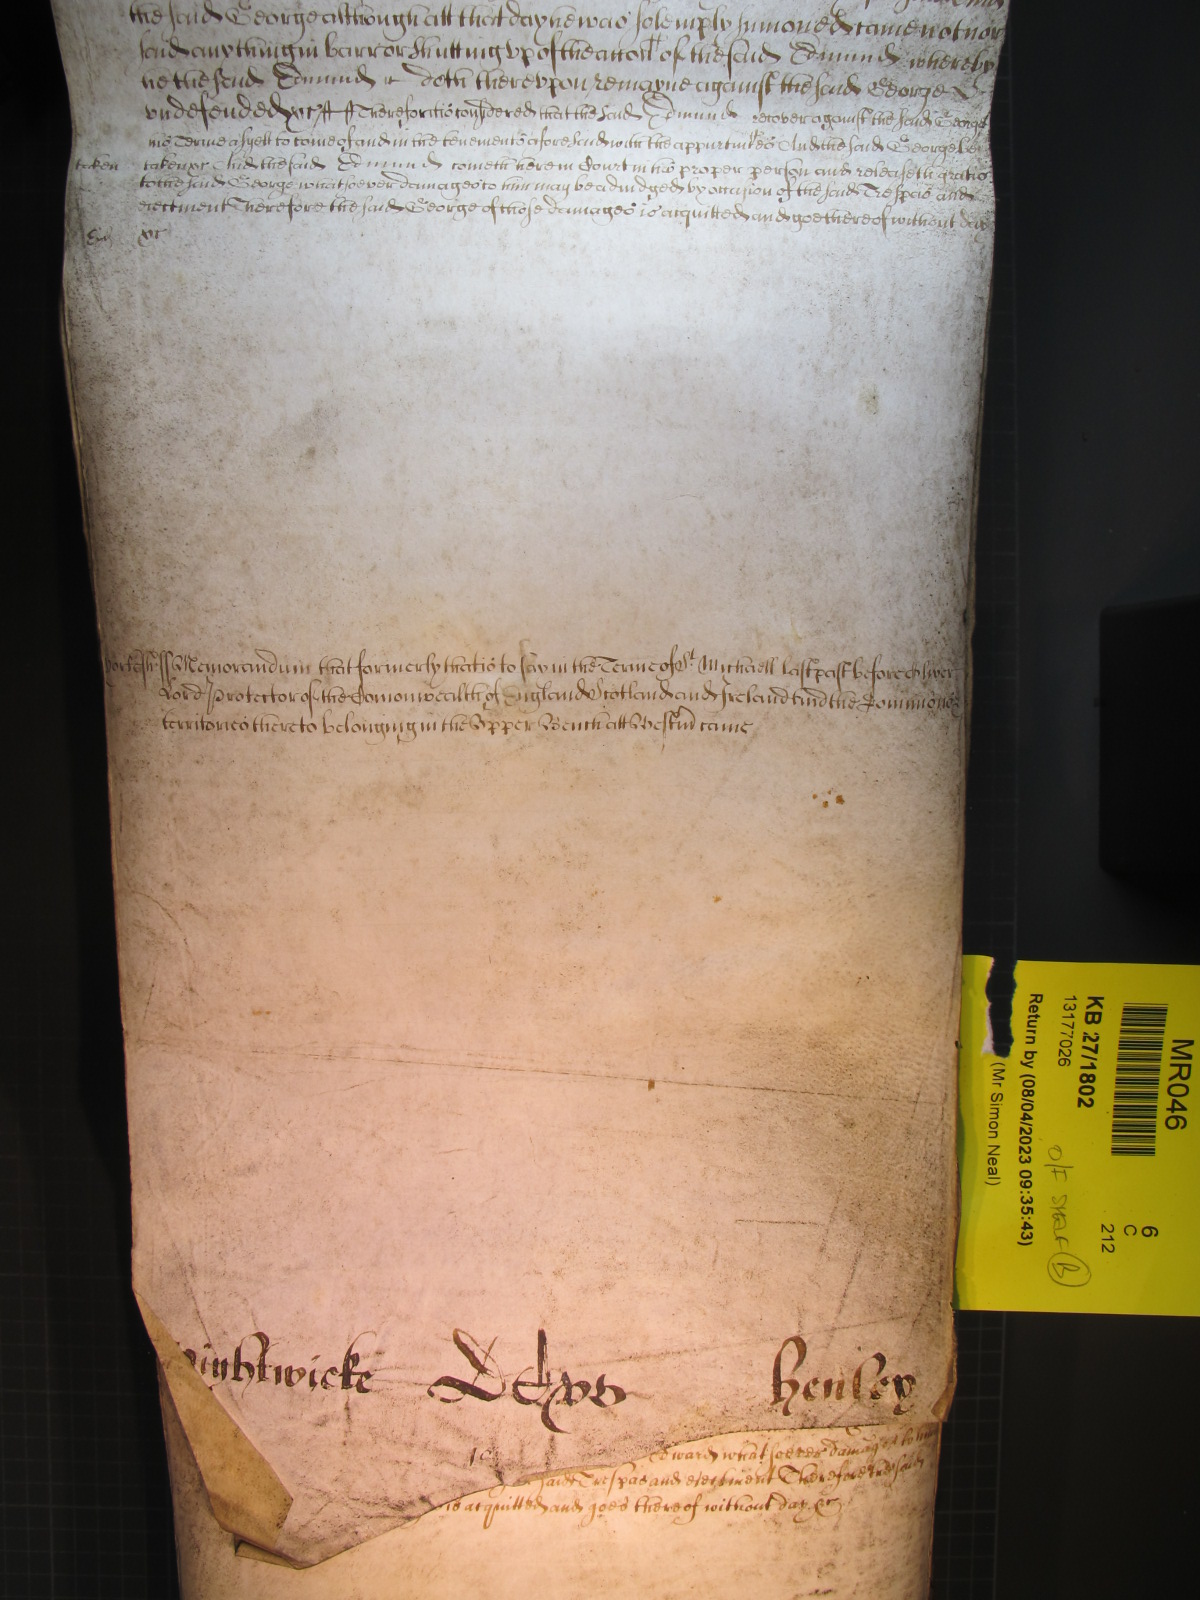 the said George although att that day he was solemply sumoned came not nor
said anything in barr or shutting up of the accon of the said Edmund whereby
he the said Edmund doth thereupon remayne against the said George
undefended &c Therefore itt is considered that the said Edmund recover against the said George
his Terme as yett to come of and in the tenements aforesaid with the appurtinnces And the said George bee
taken taken &c And the said Edmund cometh here in Court in his proper person and releaseth gratis
to the said George whatsoever damages to him may be adiudged by occasion of the said Trespas and
eiectment Therefore the said George of those damages is acquitted and goe thereof without day
&c
ss Memorandum that formerly that is to say in the Terme of St Michaell last past before Oliver
Lord Protector of the Comonwealth of England Scotland and Ireland and the Dominions
territories thereto belonging in the Upper Bench att Westm came
Wightwicke Henley
edward whatsoever damages to him
said Trespas and eiectment Therefore the said
is acquitted and goes thereof without day &c
MR046
6
C
212
KB 27/1802
13177026
O/F SHELF B
Return by (08/04/2023 09:35:43)
(Mr Simon Neal)